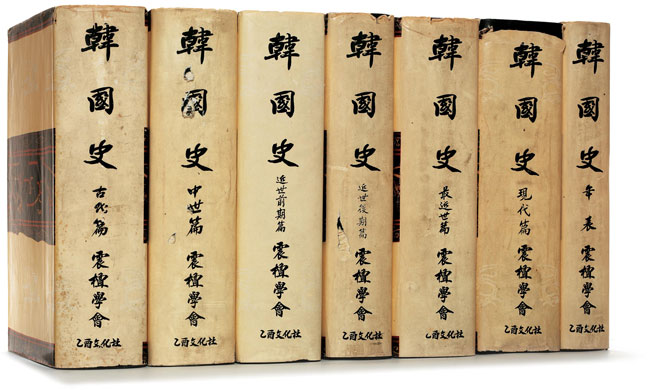 韓國史
古代篇
震檀學會
乙酉文化社
韓國史
中世篇
震檀學會
乙酉文化社
韓國史
近世前期篇
震檀學會
乙酉文化社
韓國史
近世後期篇
震檀學會
乙酉文化社
韓國史
最近世篇
震檀學會
乙酉文化社
韓國史
現代篇
震檀學會
乙酉文化社
韓國史
年表
震檀學會
乙酉文化社